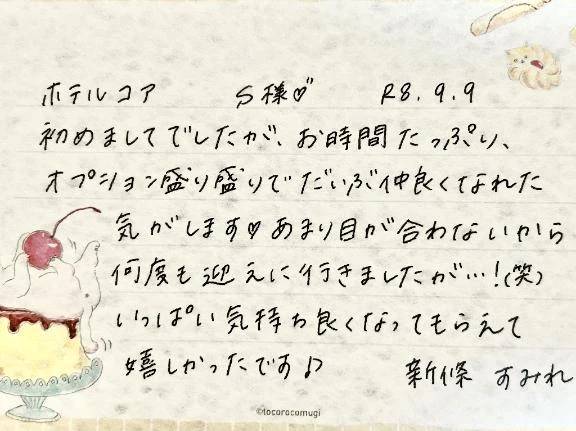 ホテルコア S様♡ R8.9.9
初めましてでしたが、お時間たっぷり、
オプション盛り盛りでだいぶ仲良くなれた
気がします♡あまり目が合わないから
何度も迎えに行きましたが…!(笑)
いっぱい気持ち良くなってもらえて
嬉しかったです♪
新條 すみれ
©tocorocomugi